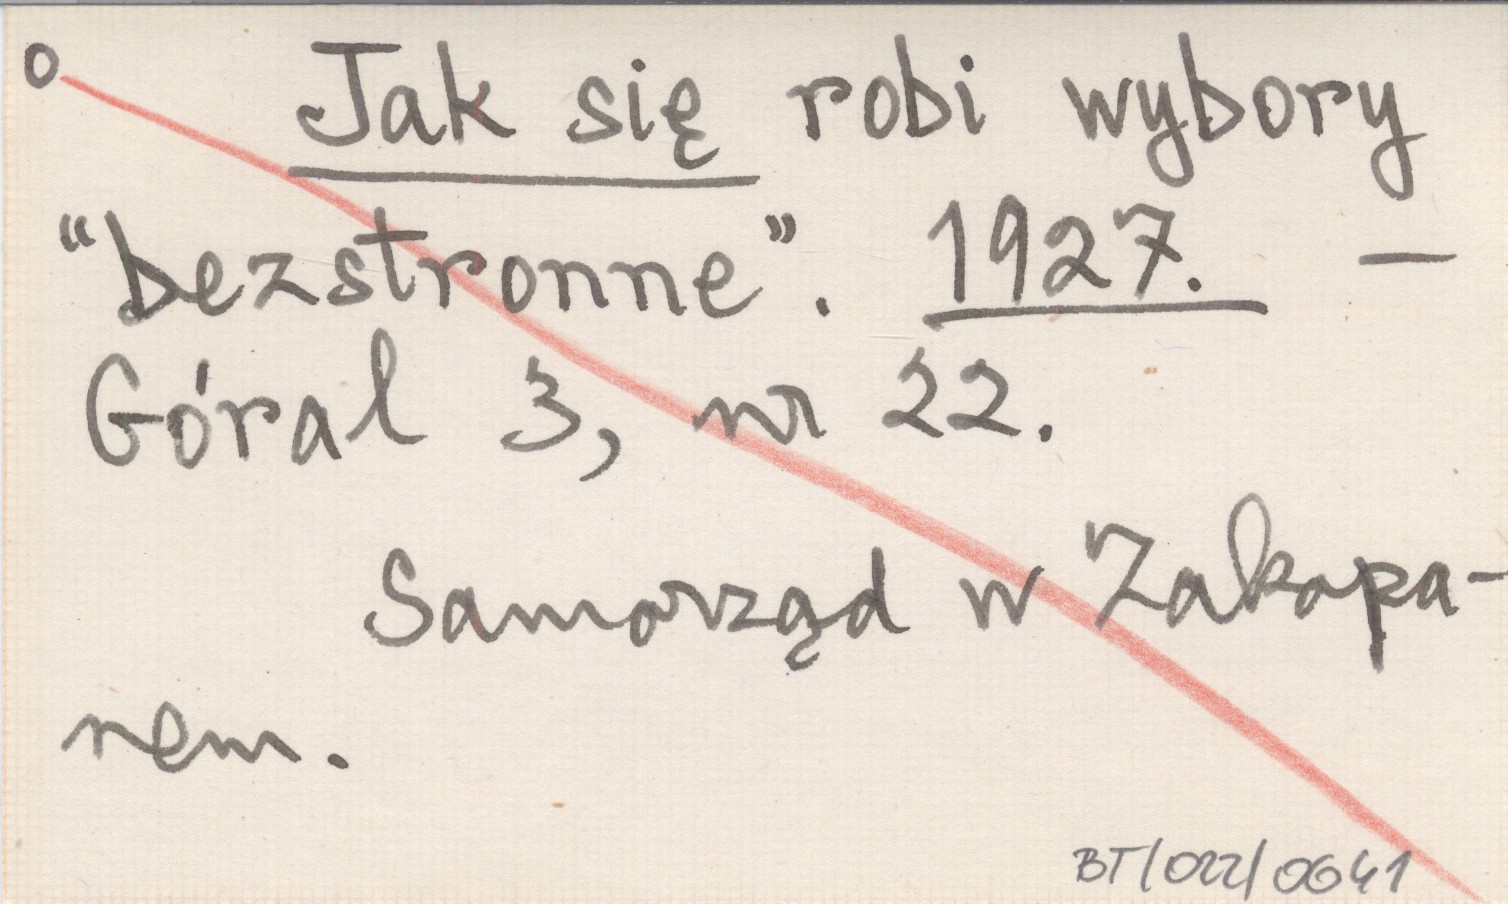 o Jak się robi wybory
“bezstronne”. 1927. —
Góral 3, nr 22.
Samorząd w Zakopa-
nem.
BT/022/0641